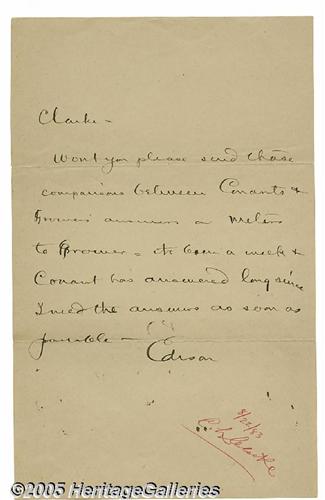 Clarke –
Wont you please send those
comparisons between Conants &
answers on Meters
to Brower – its been a week &
Conant has answered long since
I need the answers as soon as
possible –
Edison
8/22/83
C L Clarke
©2005 HeritageGalleries